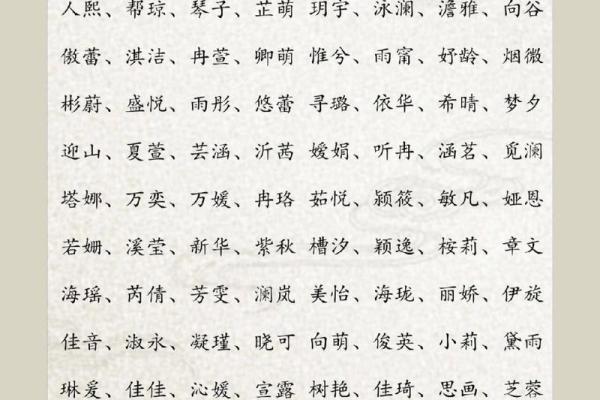 人熙、帮琼、琴子、芷萌 玥宇、泳澜、澹雅、向谷
傲蕾、淇洁、冉萱、卿萌 惟兮、雨甯、妤龄、烟微
彬蔚、盛悦、雨彤、悠蕾 寻璐、依华、希晴、梦夕
迎山、夏萱、芸涵、沂茜 嫒娟、听冉、涵茗、觅澜
塔娜、万奕、万媛、冉珞 茹悦、颍筱、敏凡、娅恩
若姗、溪莹、新华、紫秋 槽汐、颖逸、桉莉、章文
海瑶、芮倩、芳雯、澜岚 美怡、海珑、丽娇、伊旋
佳音、淑永、凝瑾、晓可 向萌、俊英、小莉、黛雨
琳爰、佳佳、沁媛、宣露 树艳、佳琦、思画、芝蓉